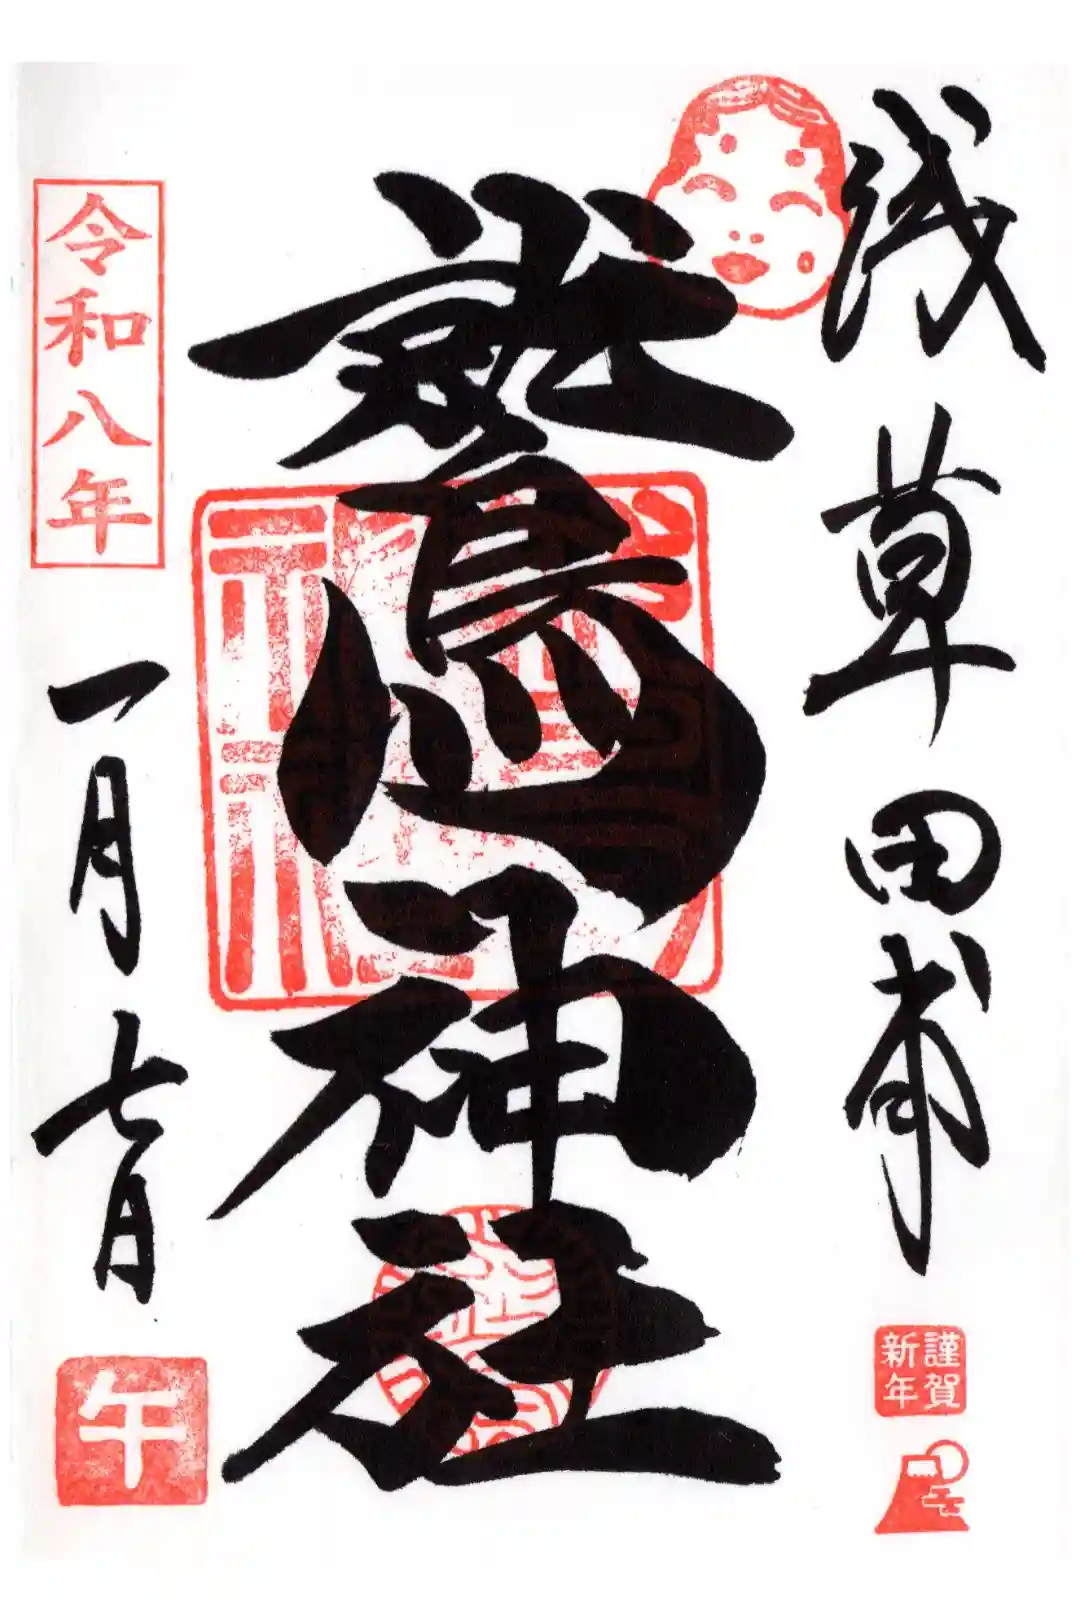 浅草田甫
謹賀
新年
鷲神社
令和八年
一月七日
午